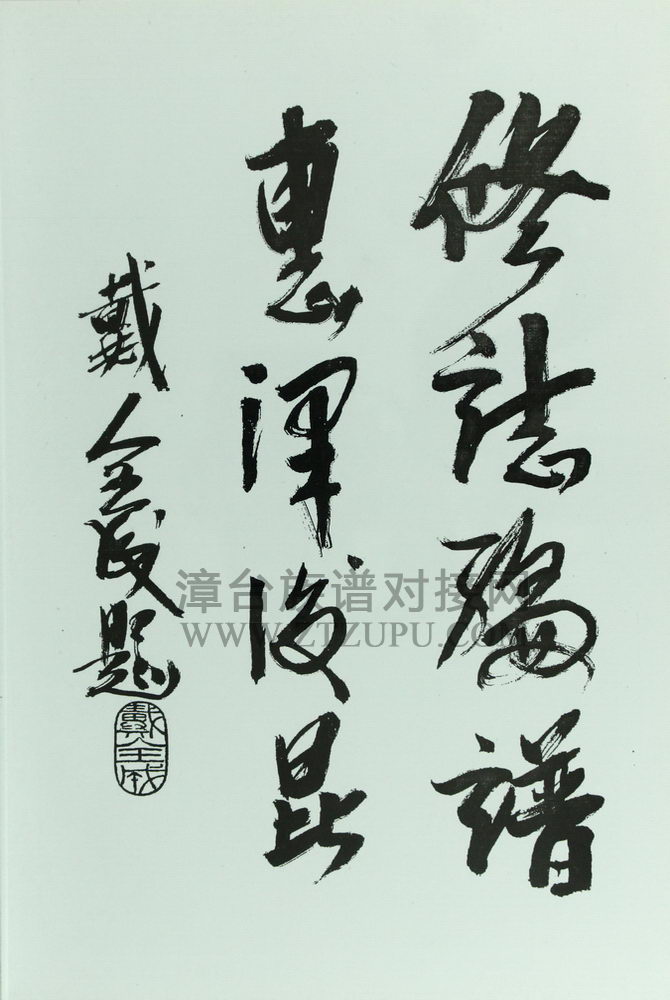 修誌編譜
惠澤後昆
戴全題
漳台族谱对接网
WWW.ZTZUPU.COM